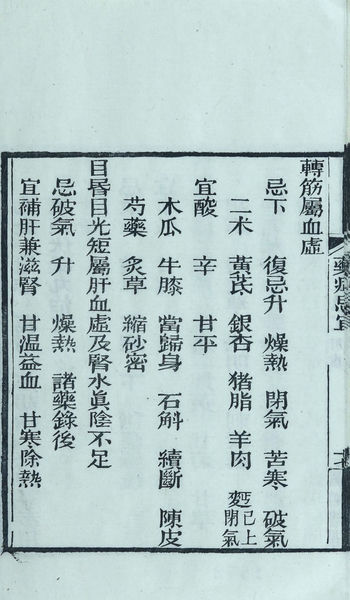 轉筋屬血虛
忌下 復忌升 燥熱 閉氣 苦寒 破氣
二木 黃芪 銀杏 猪脂 羊肉 麫已上閉氣
宜酸 辛 甘平
木瓜 牛膝 當歸身 石斛 續斷 陳皮
芍藥 炙草 縮砂密
目昏目光短屬肝血虛及腎水眞陰不足
忌破氣 升 燥熱 諸藥錄後
宜補肝兼滋腎 甘溫益血 甘寒除熱
藥病忌宜